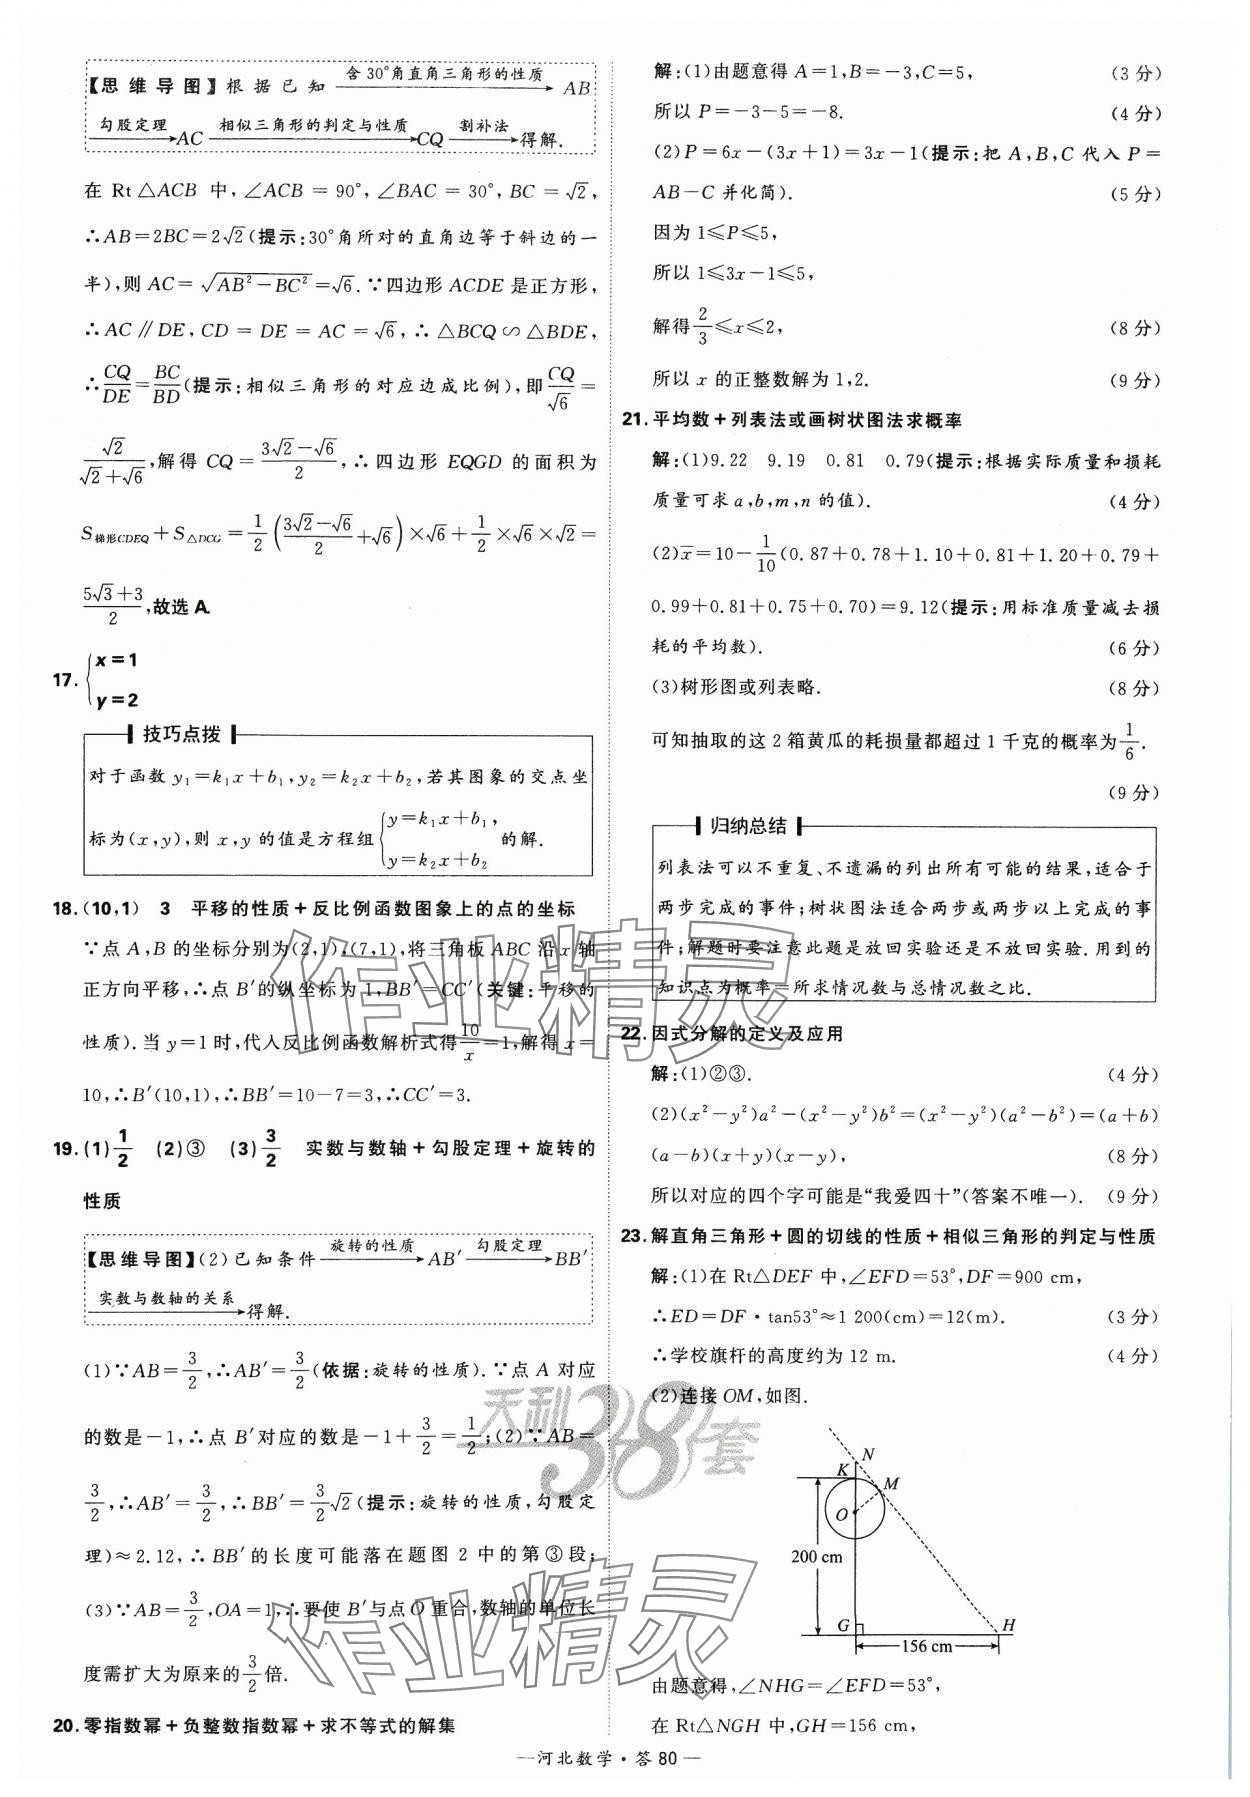 【思维导图】根据已知 —含30°角直角三角形的性质→ AB
—勾股定理→ AC —相似三角形的判定与性质→ CQ —割补法→ 得解.
在 Rt△ACB 中,∠ACB = 90°,∠BAC = 30°,BC = √2,
∴AB=2BC=2√2(提示:30°角所对的直角边等于斜边的一
半),则 AC= √(AB²-BC²) =√6. ∵四边形 ACDE 是正方形,
∴AC∥DE, CD = DE = AC = √6, ∴△BCQ∽△BDE,
∴CQ/DE=BC/BD(提示:相似三角形的对应边成比例),即 CQ/√6 =
√2/(√2+√6),解得 CQ = (3√2-√6)/2, ∴四边形 EQGD 的面积为
S梯形CDEQ + S△DCG = 1/2((3√2-√6)/2+√6)×√6+1/2×√6×√2=
(5√3+3)/2,故选 A.
17. { x=1
y=2
技巧点拨
对于函数 y₁=k₁x+b₁,y₂=k₂x+b₂,若其图象的交点坐
标为(x,y),则 x,y 的值是方程组 { y=k₁x+b₁,
y=k₂x+b₂ 的解.
18.(10,1) 3 平移的性质+反比例函数图象上的点的坐标
∵点 A,B 的坐标分别为(2,1),(7,1),将三角板 ABC 沿 x 轴
正方向平移,∴点 B′的纵坐标为 1,BB′=CC′(关键:平移的
性质). 当 y=1 时,代入反比例函数解析式得10/x=1,解得 x=
10,∴B′(10,1),∴BB′=10-7=3,∴CC′=3.
19.(1)1/2 (2)③ (3)3/2 实数与数轴+勾股定理+旋转的
性质
【思维导图】(2)已知条件 —旋转的性质→ AB′ —勾股定理→ BB′
—实数与数轴的关系→ 得解.
(1)∵AB=3/2,∴AB′=3/2(依据:旋转的性质). ∵点 A 对应
的数是-1,∴点 B′对应的数是-1+3/2=1/2;(2)∵AB=
3/2,∴AB′=3/2,∴BB′=3/2√2(提示:旋转的性质,勾股定
理)≈2.12,∴BB′的长度可能落在题图 2 中的第③段;
(3)∵AB=3/2,OA=1,∴要使 B′与点 O 重合,数轴的单位长
度需扩大为原来的3/2倍.
20.零指数幂+负整数指数幂+求不等式的解集
解:(1)由题意得 A=1,B=-3,C=5, (3 分)
所以 P=-3-5=-8. (4 分)
(2)P=6x-(3x+1)=3x-1(提示:把 A,B,C 代入 P=
AB-C 并化简). (5 分)
因为 1≤P≤5,
所以 1≤3x-1≤5,
解得2/3≤x≤2, (8 分)
所以 x 的正整数解为 1,2. (9 分)
21.平均数+列表法或画树状图法求概率
解:(1)9.22 9.19 0.81 0.79(提示:根据实际质量和损耗
质量可求 a,b,m,n 的值). (4 分)
(2)x̄=10-1/10(0.87+0.78+1.10+0.81+1.20+0.79+
0.99+0.81+0.75+0.70)=9.12(提示:用标准质量减去损
耗的平均数). (6 分)
(3)树形图或列表略. (8 分)
可知抽取的这 2 箱黄瓜的耗损量都超过 1 千克的概率为1/6.
(9 分)
归纳总结
列表法可以不重复、不遗漏的列出所有可能的结果,适合于
两步完成的事件;树状图法适合两步或两步以上完成的事
件;解题时要注意此题是放回实验还是不放回实验. 用到的
知识点为概率=所求情况数与总情况数之比.
22.因式分解的定义及应用
解:(1)②③. (4 分)
(2)(x²-y²)a²-(x²-y²)b²=(x²-y²)(a²-b²)=(a+b)
(a-b)(x+y)(x-y), (8 分)
所以对应的四个字可能是“我爱四十”(答案不唯一). (9 分)
23.解直角三角形+圆的切线的性质+相似三角形的判定与性质
解:(1)在 Rt△DEF 中,∠EFD=53°,DF=900 cm,
∴ED=DF·tan53°≈1 200(cm)=12(m). (3 分)
∴学校旗杆的高度约为 12 m. (4 分)
(2)连接 OM,如图.
N
K
M
O
200 cm
G
H
156 cm
由题意得,∠NHG=∠EFD=53°,
在 Rt△NGH 中,GH=156 cm,
—河北数学·答 80—
作业精灵
天利38套
作业精灵